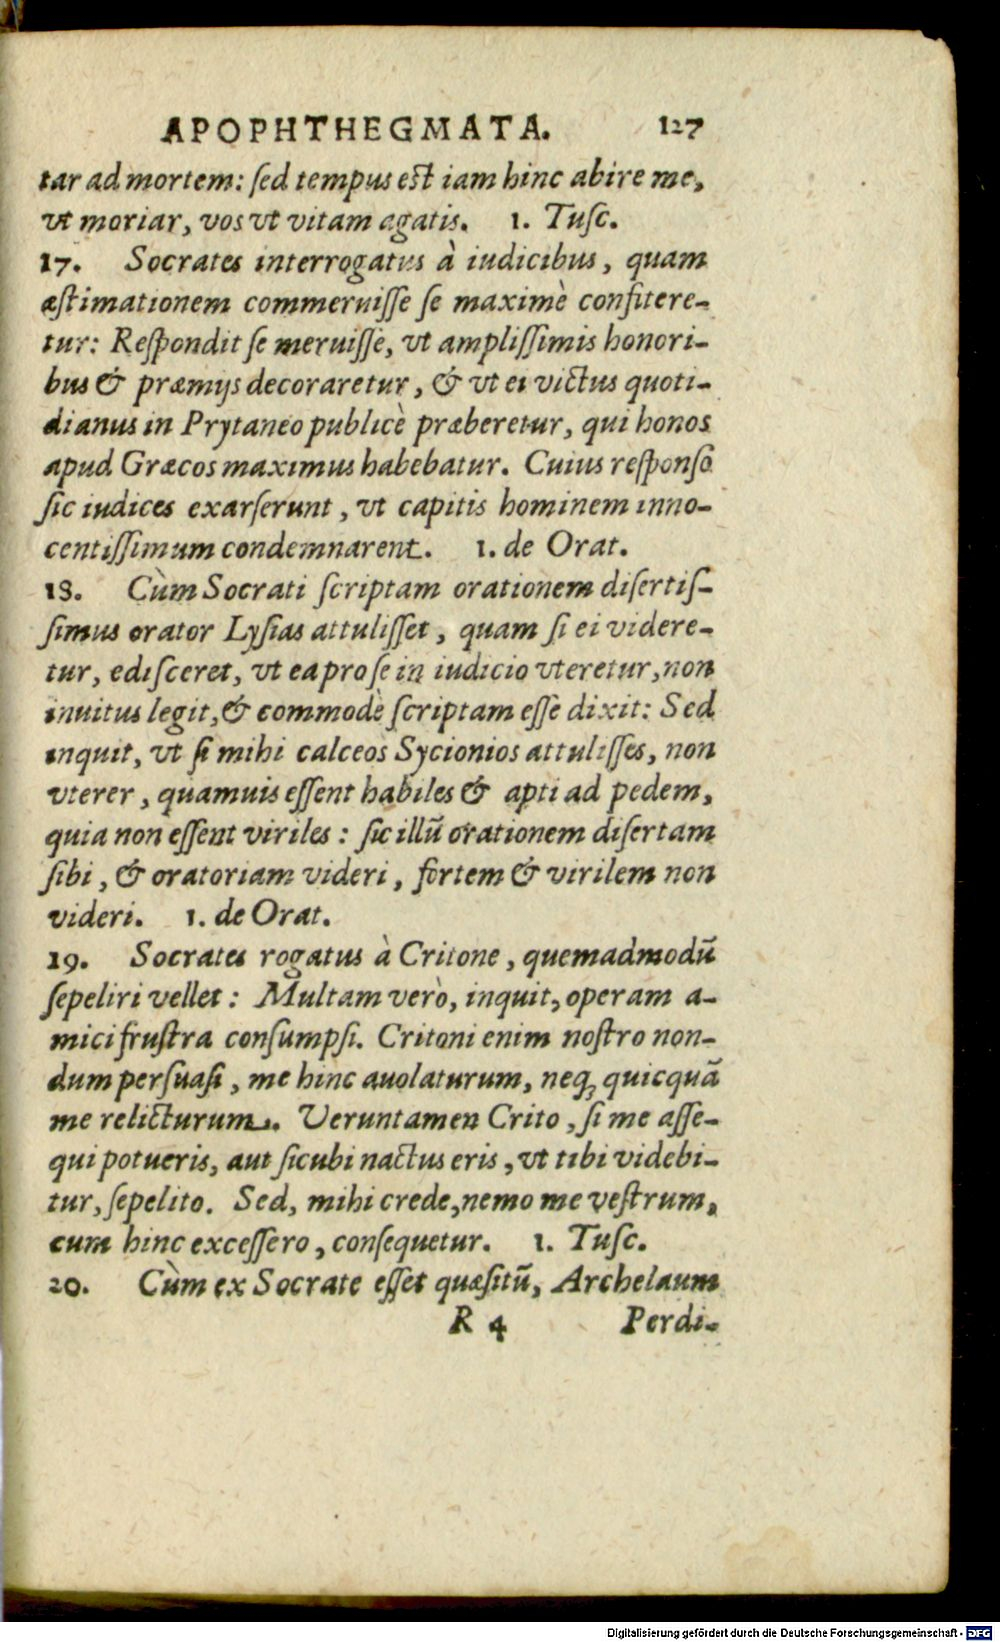 APOPHTHEGMATA. 127
tar ad mortem: ſed tempus est iam hinc abire me,
vt moriar, vos vt vitam agatis. 1. Tuſc.
17. Socrates interrogatus à iudicibus, quam
æſtimationem commeruiſſe ſe maximè confitere-
tur: Reſpondit ſe meruiſſe, vt ampliſſimis honori-
bus & præmijs decoraretur, & vt ei victus quoti-
dianus in Prytaneo publicè præberetur, qui honos
apud Græcos maximus habebatur. Cuius reſponſo
ſic iudices exarſerunt, vt capitis hominem inno-
centiſſimum condemnarent. 1. de Orat.
18. Cùm Socrati ſcriptam orationem diſertiſ-
ſimus orator Lyſias attuliſſet, quam ſi ei videre-
tur, ediſceret, vt ea pro ſe in iudicio vteretur, non
inuitus legit, & commodè ſcriptam eſſe dixit: Sed
inquit, vt ſi mihi calceos Sycionios attuliſſes, non
vterer, quamuis eſſent habiles & apti ad pedem,
quia non eſſent viriles: ſic illũ orationem diſertam
ſibi, & oratoriam videri, fortem & virilem non
videri. 1. de Orat.
19. Socrates rogatus à Critone, quemadmodũ
ſepeliri vellet: Multam verò, inquit, operam a-
mici fruſtra conſumpſi. Critoni enim noſtro non-
dum perſuaſi, me hinc auolaturum, neq; quicquã
me relicturum. Veruntamen Crito, ſi me aſſe-
qui potueris, aut ſicubi nactus eris, vt tibi videbi-
tur, ſepelito. Sed, mihi crede, nemo me veſtrum,
cum hinc exceſſero, conſequetur. 1. Tuſc.
20. Cùm ex Socrate eſſet quæſitũ, Archelaum
R 4 Perdi-
Digitalisierung gefördert durch die Deutsche Forschungsgemeinschaft - DFG